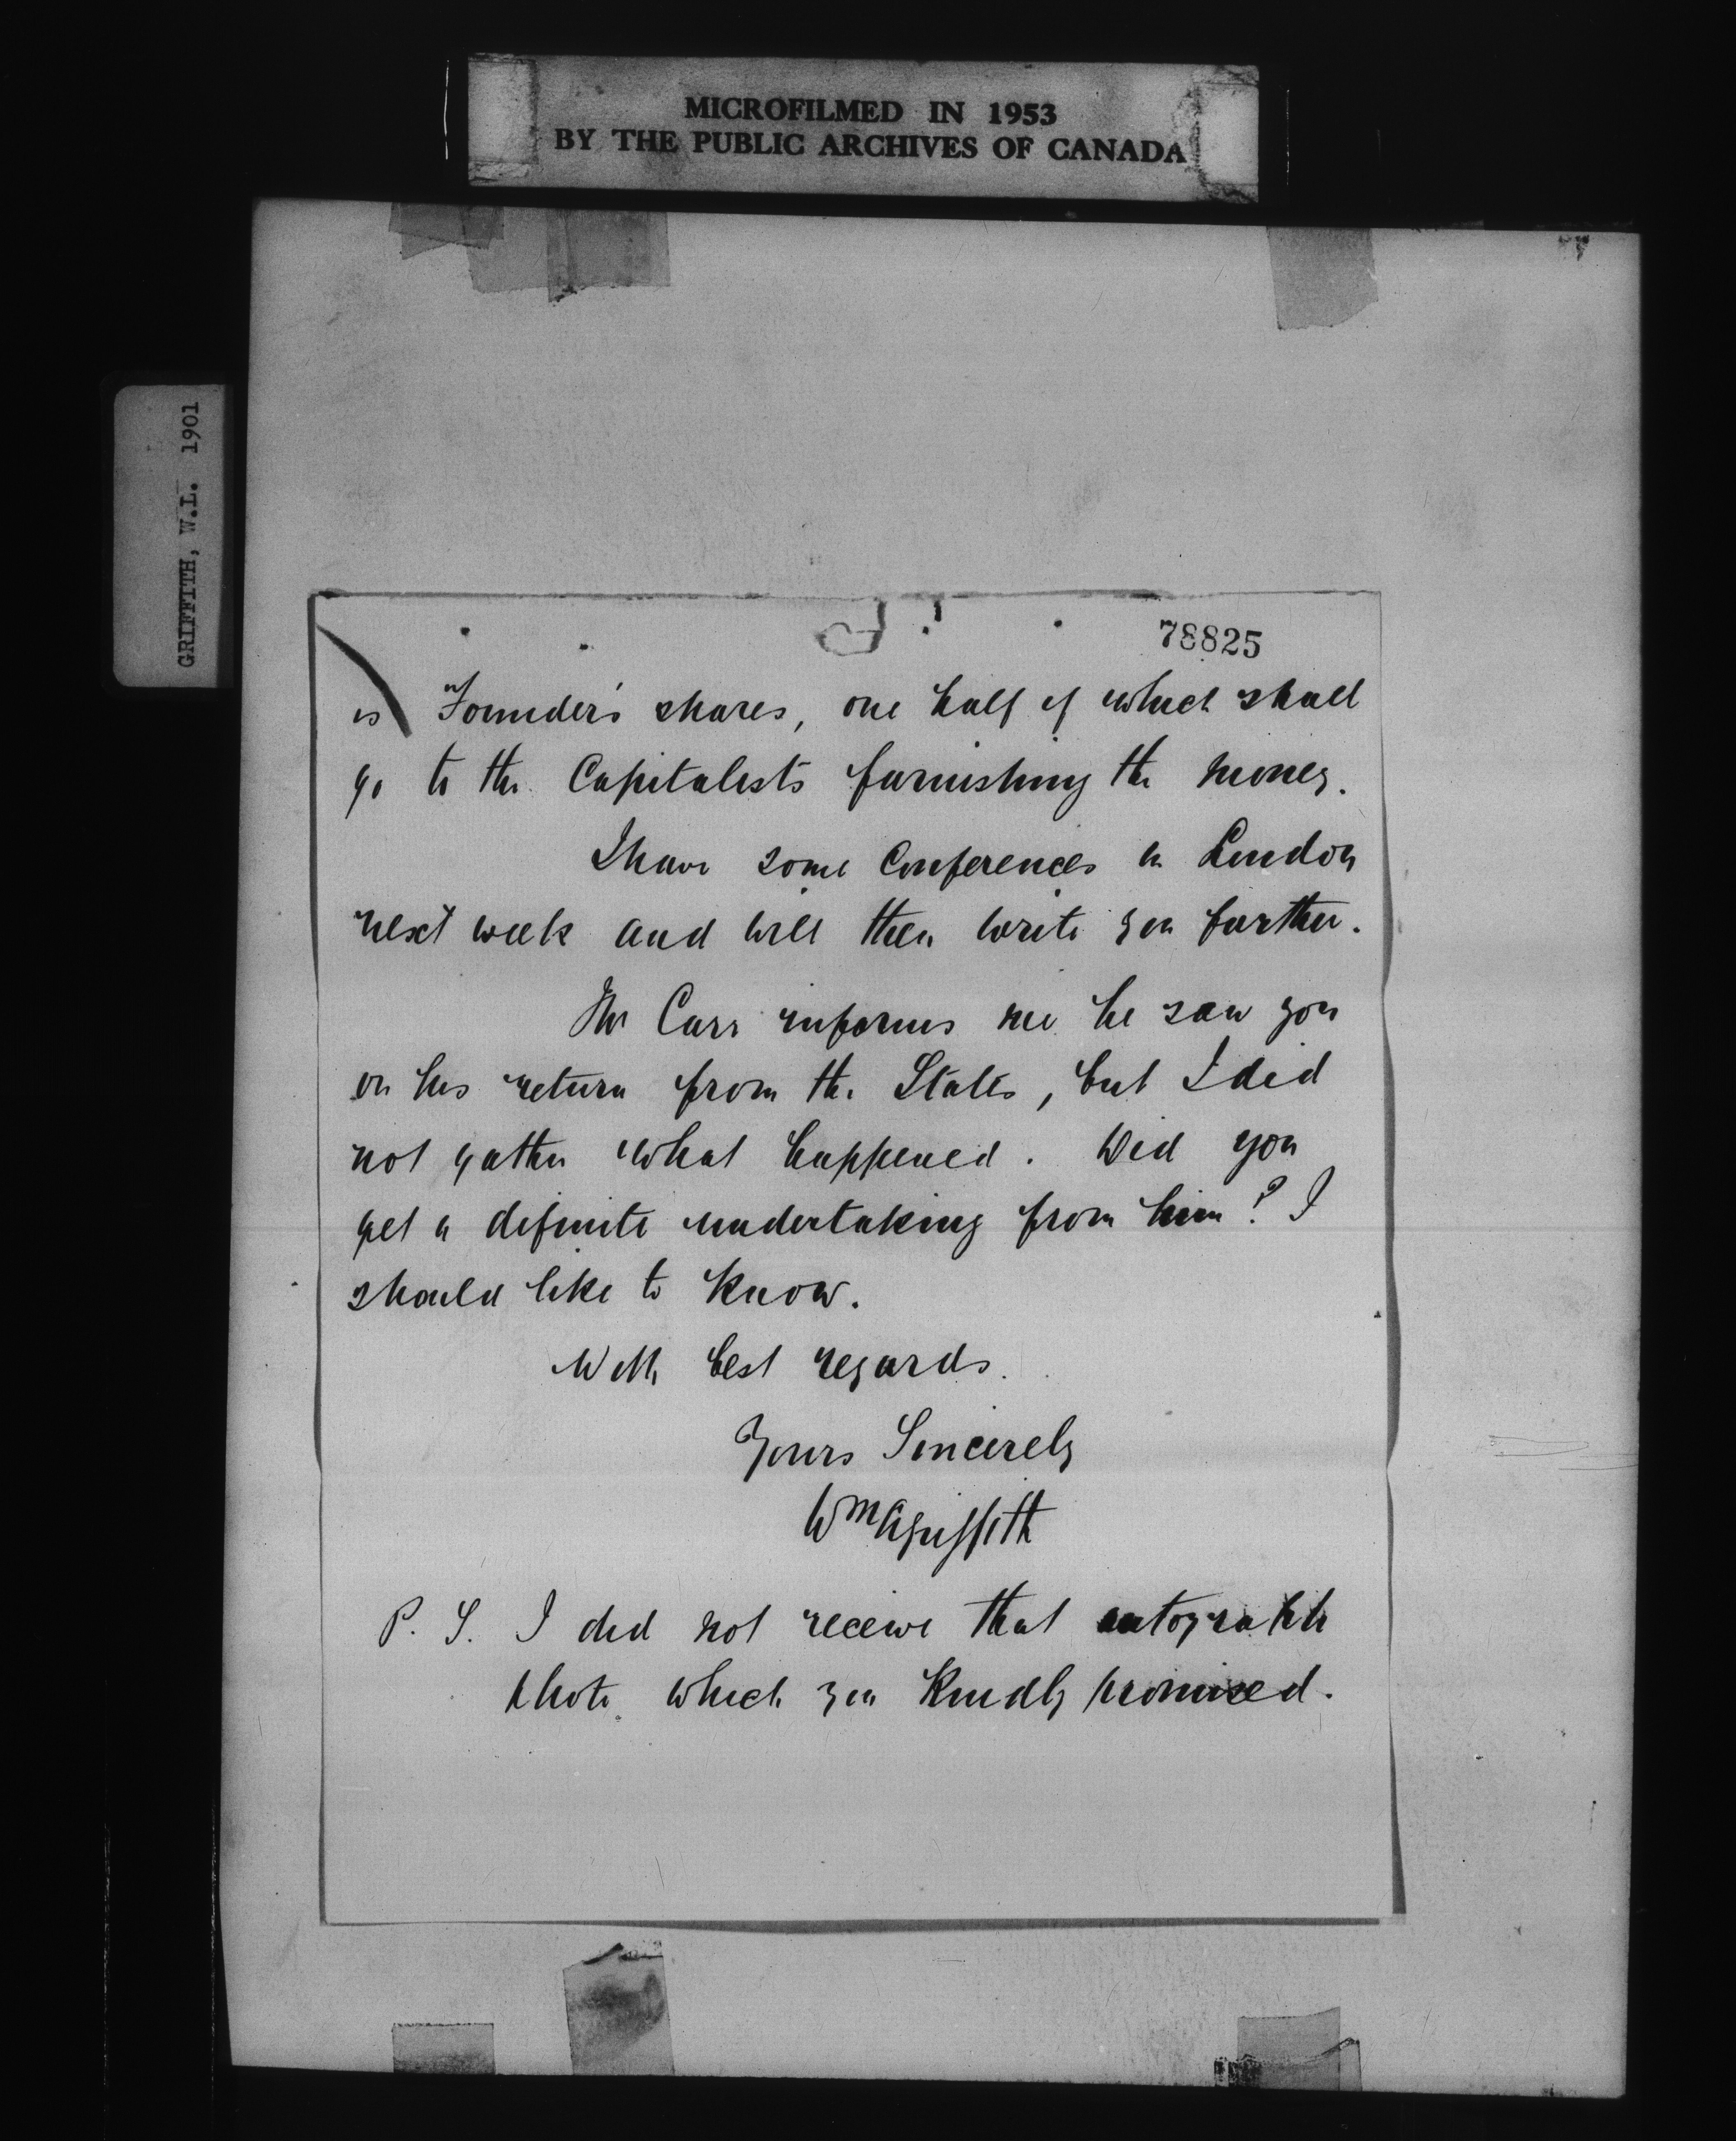 MICROFILMED IN 1953
BY THE PUBLIC ARCHIVES OF CANADA
GRIFFITH, W.L. 1901
78825
is Founders' shares, one half of which shall
go to the Capitalists furnishing the money.
I have some Conferences in London
next week and will then write you further.
Mr Carr informs me he saw you
on his return from the States, but I did
not gather what happened. Did you
get a definite undertaking from him? I
should like to know.
With best regards.
Yours Sincerely
Wm Griffith
P. S. I did not receive that autograph
photo which you kindly promised.